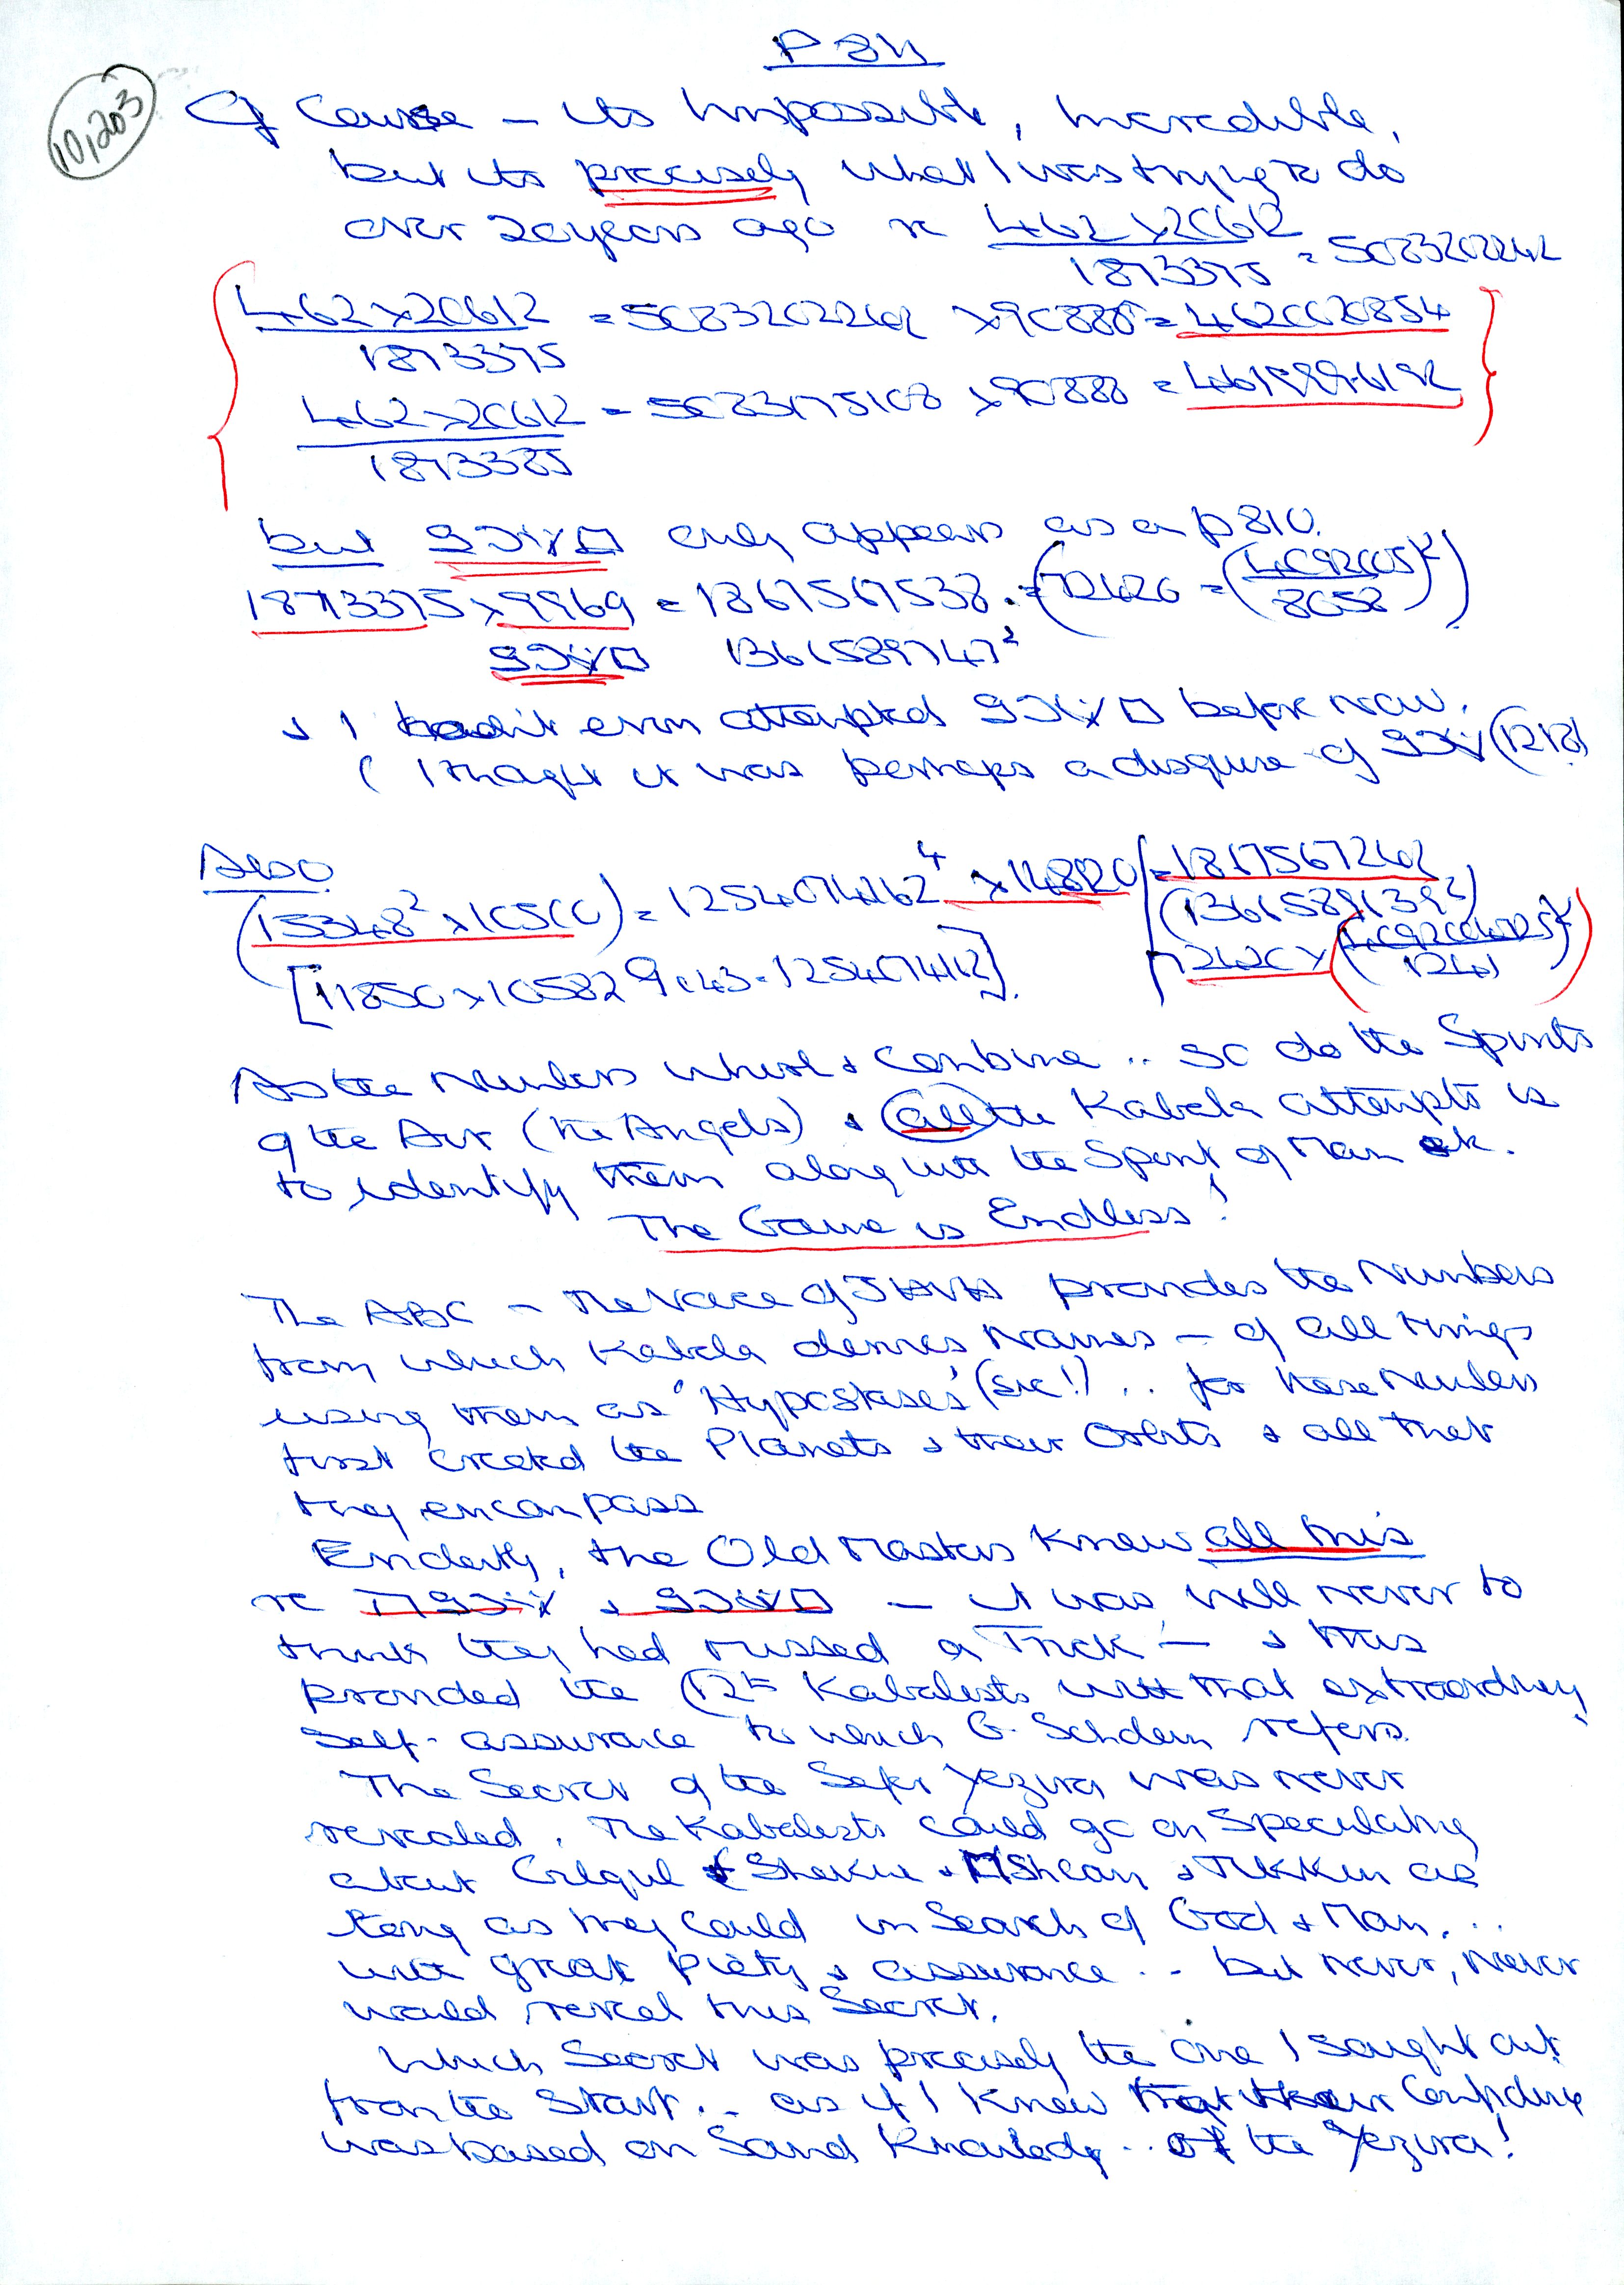 P 811
10,203
Of Course – its Impossible, Incredible,
but its precisely what I was trying to do
over 20 years ago re 462 x 20612 / 1873375 = 5083202242
462 x 20612 / 1873375 = 5083202262 x 90888 = 462002854
462 x 20612 / 1873385 = 5083175108 x 90888 = 461999.6192
but only appears as on p 810.
1873375 x 9969 = 1867567538
1361589747²
& I hadn't even attempted before now.
( I thought it was perhaps a disguise of (1218)
Also
(15348² x 10500) = 1254074162⁴ x 14820 = 1867567262
[11850 x 105829.43 = 125407412]
As the Numbers whirl & combine .. so do the Spirits
of the Air (the Angels) & all the Kabala attempts is
to identify them along with the Spirit of Man etc.
The Game is Endless!
The ABC – The Voice of JHVH provides the Numbers
from which Kabala derives Names – of all things
using them as 'Hypostases' (sic!) .. for these Numbers
first created the Planets & their Orbits & all that
they encompass
Evidently, the Old Masters knew all this
re & – it was well never to
think they had missed a Trick – & this
provided the C12th Kabalists with that extraordinary
self-assurance to which G. Scholem refers.
The Secret of the Sefer Yezira was never
revealed. The Kabalists could go on Speculating
about Gilgul & Tikkun as
long as they could in Search of God & Man...
with great Piety & assurance .. but never, never
would reveal this Secret.
Which Secret was precisely the one I sought out
from the Start .. as if I knew that their Confidence
was based on Sound Knowledge .. of the Yezira!